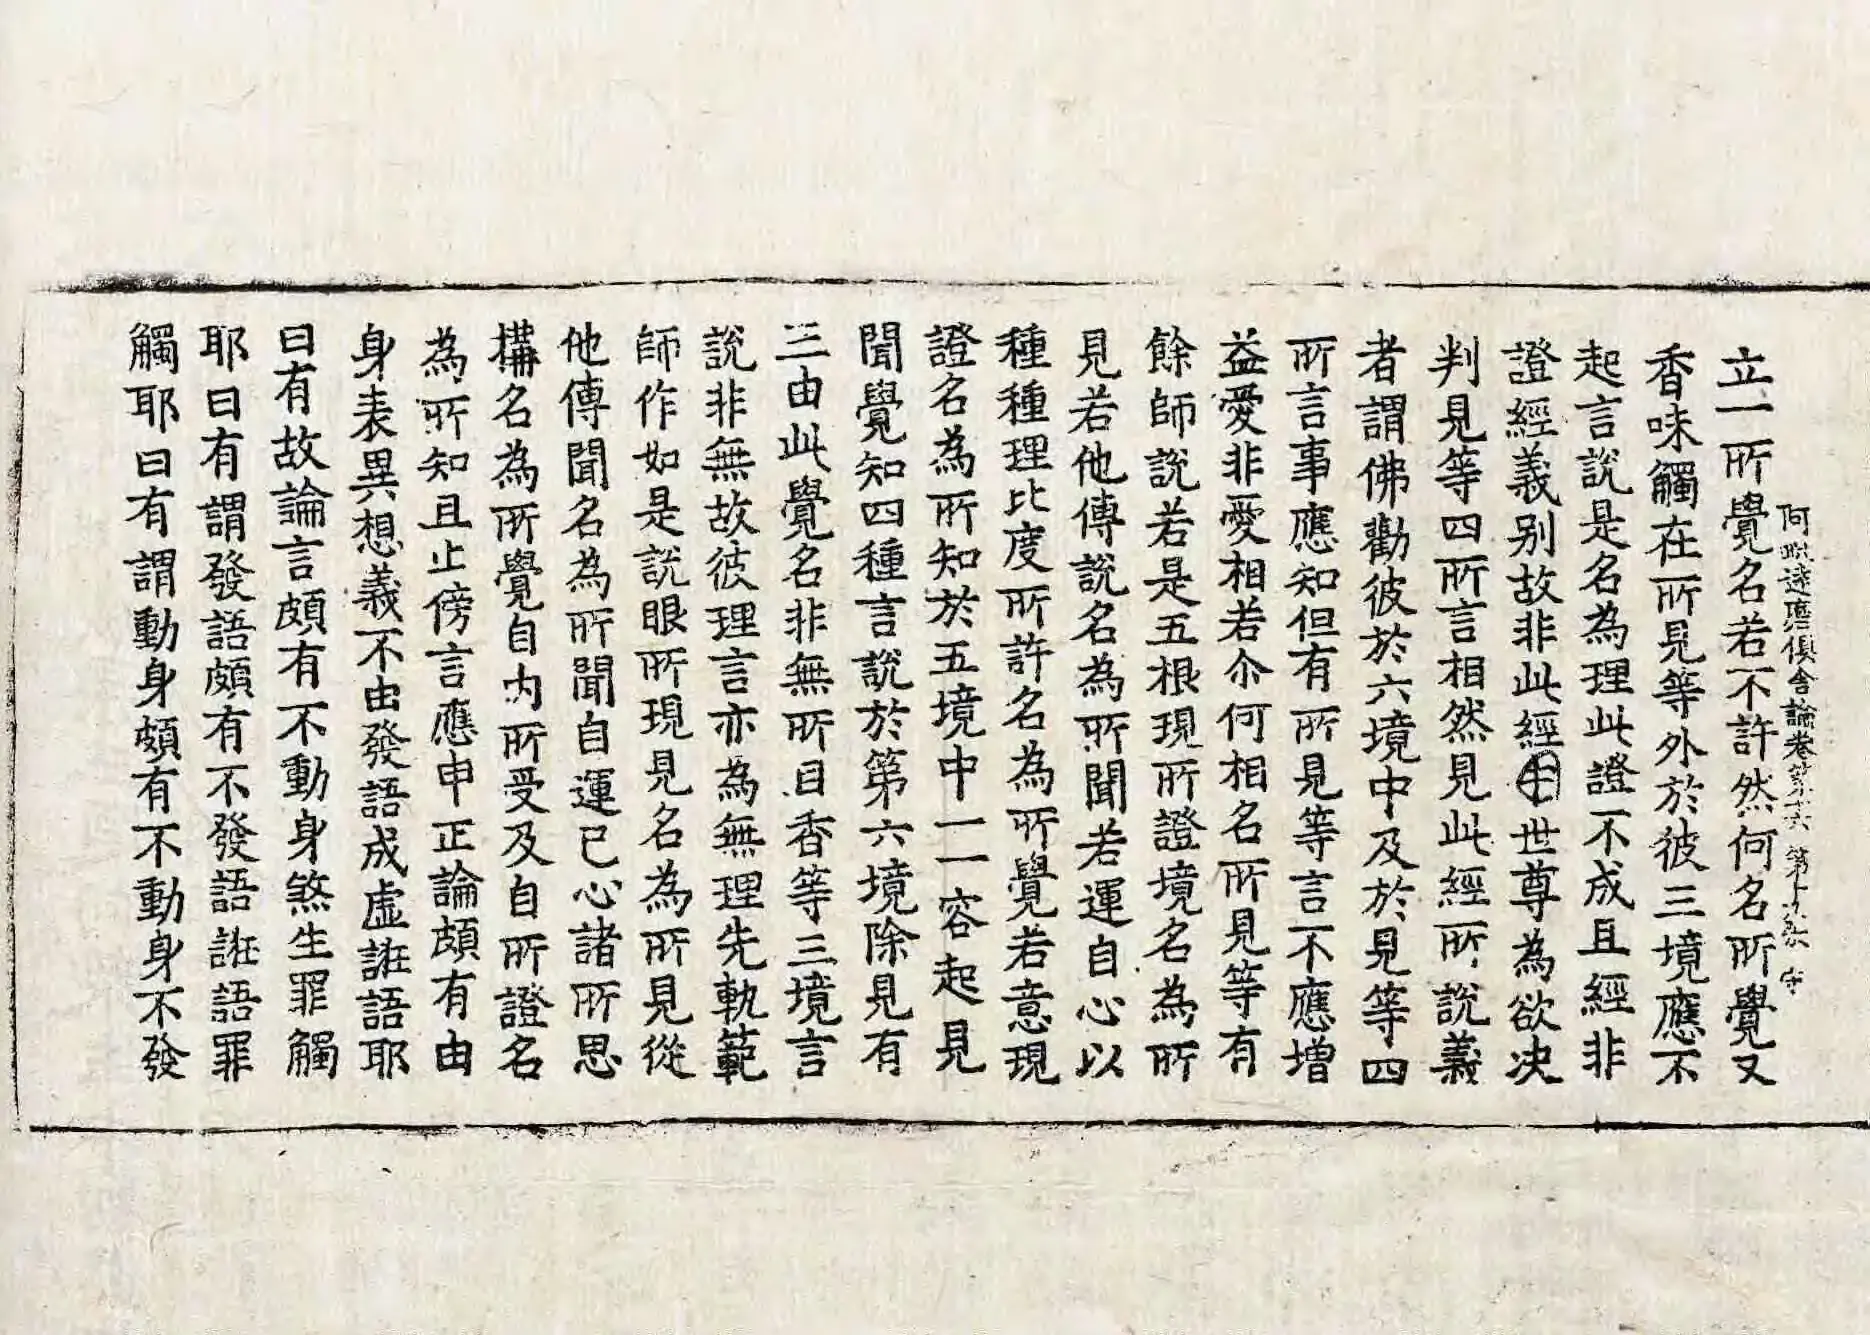 阿毗達磨俱舍論卷第十六 第十九張
立一所覺名若不許然何名所覺又
香味觸在所見等外於彼三境應不
起言說是名為理此證不成且經非
證經義别故非此經中世尊為欲决
判見等四所言相然見此經所說義
者謂佛勸彼於六境中及於見等四
所言事應知但有所見等言不應增
益愛非愛相若尒何相名所見等有
餘師說若是五根現所證境名為所
見若他傳說名為所聞若運自心以
種種理比度所許名為所覺若意現
證名為所知於五境中一一容起見
聞覺知四種言說於第六境除見有
三由此覺名非無所目香等三境言
說非無故彼理言亦為無理先軌範
師作如是說眼所現見名為所見從
他傳聞名為所聞自運已心諸所思
搆名為所覺自內所受及自所證名
為所知且止傍言應申正論頗有由
身表異想義不由發語成虛誑語耶
曰有故論言頗有不動身煞生罪觸
耶曰有謂發語頗有不發語誑語罪
觸耶曰有謂動身頗有不動身不發